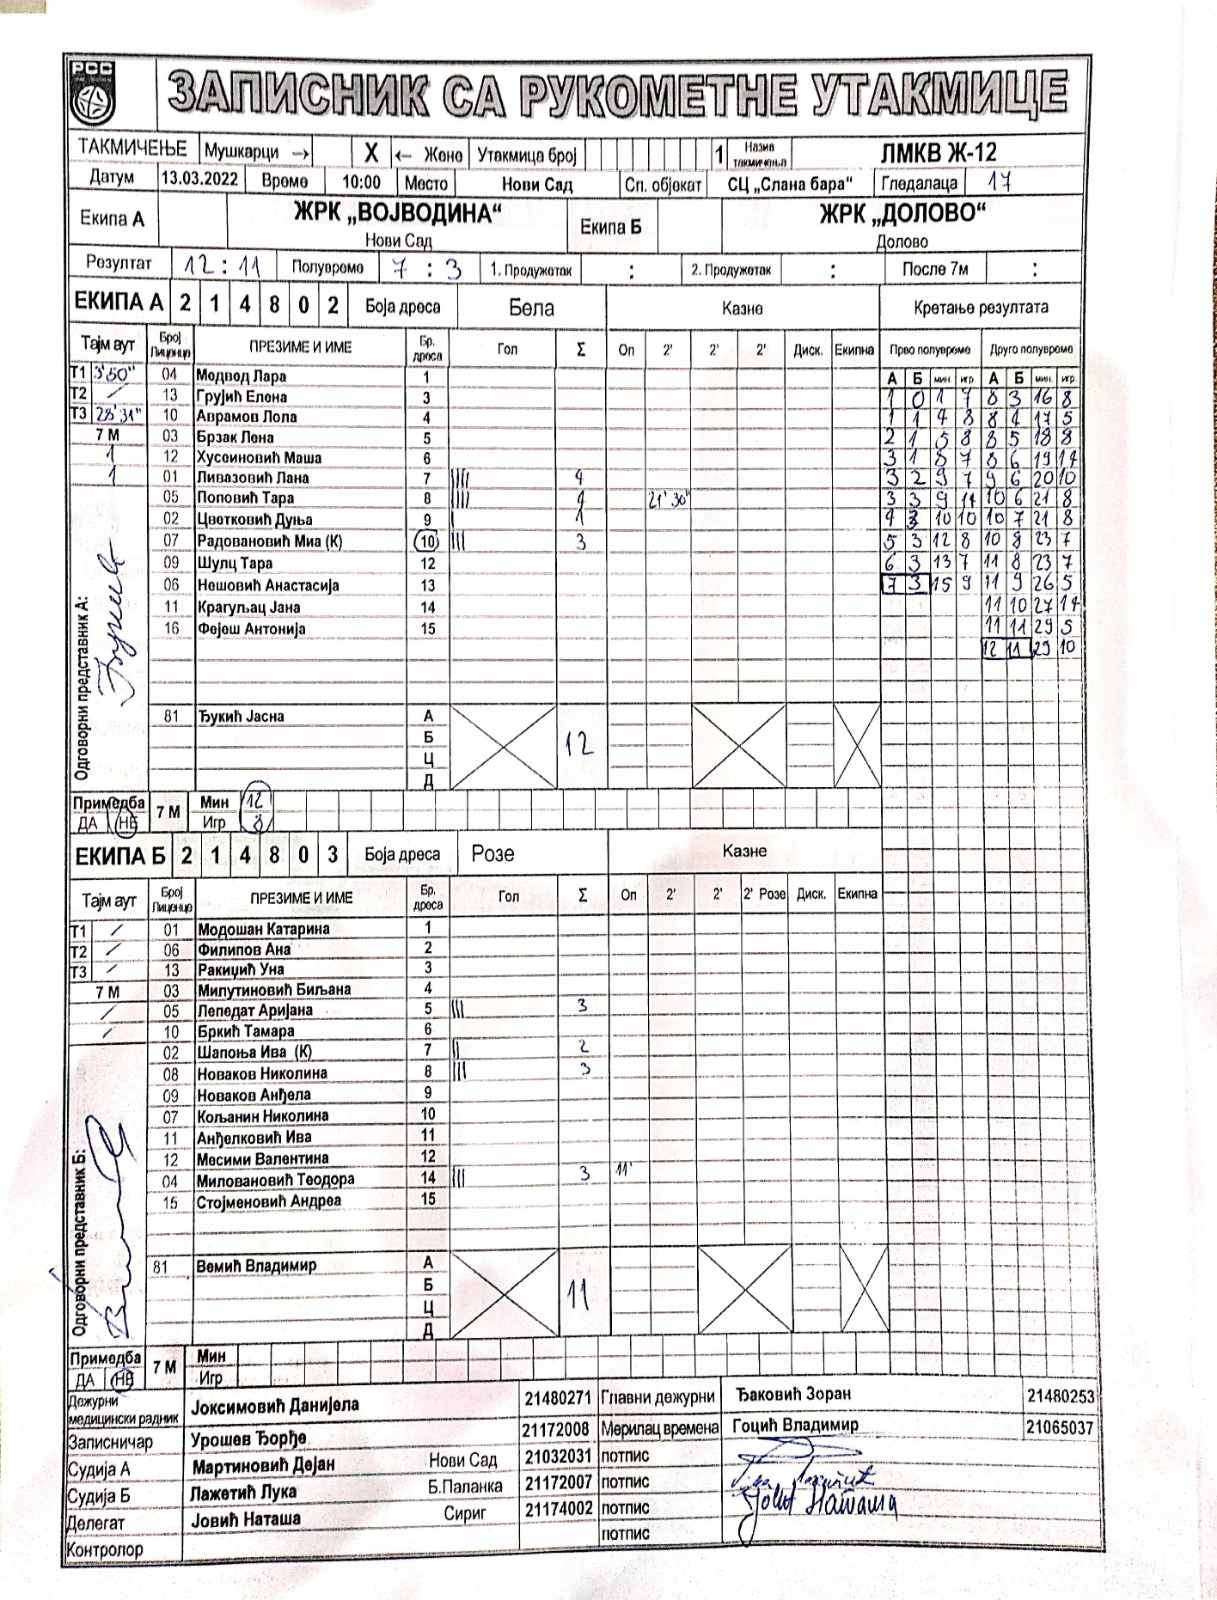 РСС
ЗАПИСНИК СА РУКОМЕТНЕ УТАКМИЦЕ
ТАКМИЧЕЊЕ Мушкарци → X ← Жене Утакмица број 1 Назив такмичења ЛМКВ Ж-12
Датум 13.03.2022 Време 10:00 Место Нови Сад Сп. објекат СЦ „Слана бара“ Гледалаца 17
Екипа А ЖРК „ВОЈВОДИНА“ Нови Сад Екипа Б ЖРК „ДОЛОВО“ Долово
Резултат 12 : 11 Полувреме 7 : 3 1. Продужетак : 2. Продужетак : После 7м :
ЕКИПА А 2 1 4 8 0 2 Боја дреса Бела Казне Кретање резултата
Тајм аут Број Лиценце ПРЕЗИМЕ И ИМЕ Бр. дреса Гол Σ Оп 2' 2' 2' Диск. Екипна Прво полувреме Друго полувреме
Т1 04 Медвед Лара 1 А Б мин. игр А Б мин. игр.
Т2 / 13 Грујић Елена 3 1 0 1 7 8 3 16 8
Т3 28'31" 10 Аврамов Лола 4 1 1 4 8 8 4 17 5
7 М 03 Брзак Лена 5 2 1 5 8 8 5 18 8
1 12 Хусеиновић Маша 6 3 1 8 7 8 6 19 14
1 01 Ливазовић Лана 7 |||| 4 3 2 9 7 9 6 20 10
05 Поповић Тара 8 |||| 4 21'30" 3 3 9 14 10 6 21 8
02 Цветковић Дуња 9 | 1 4 3 10 10 10 7 21 8
07 Радовановић Миа (К) 10 ||| 3 5 3 12 8 10 8 23 7
09 Шулц Тара 12 6 3 13 7 11 8 23 7
06 Нешовић Анастасија 13 7 3 15 9 11 9 26 5
11 Крагуљац Јана 14 11 10 27 14
16 Фејеш Антонија 15 11 11 29 5
12 11 29 10
Одговорни представник А:
81 Ђукић Јасна А 12
Б
Ц
Д
Примедба ДА НЕ 7 М Мин 12
Игр 8
ЕКИПА Б 2 1 4 8 0 3 Боја дреса Розе Казне
Тајм аут Број Лиценце ПРЕЗИМЕ И ИМЕ Бр. дреса Гол Σ Оп 2' 2' 2' Розе Диск. Екипна
Т1 / 01 Модошан Катарина 1
Т2 / 06 Филипов Ана 2
Т3 / 13 Ракиџић Уна 3
7 М 03 Милутиновић Биљана 4
/ 05 Лепедат Аријана 5 ||| 3
/ 10 Бркић Тамара 6
02 Шапоња Ива (К) 7 || 2
08 Новаков Николина 8 ||| 3
09 Новаков Анђела 9
07 Кољанин Николина 10
11 Анђелковић Ива 11
12 Месими Валентина 12
04 Миловановић Теодора 14 ||| 3 11'
15 Стојменовић Андреа 15
Одговорни представник Б:
81 Вемић Владимир А 11
Б
Ц
Д
Примедба ДА НЕ 7 М Мин
Игр
Дежурни медицински радник Јоксимовић Данијела 21480271 Главни дежурни Ђаковић Зоран 21480253
Записничар Урошев Ђорђе 21172008 Мерилац времена Гоцић Владимир 21065037
Судија А Мартиновић Дејан Нови Сад 21032031 потпис
Судија Б Лажетић Лука Б.Паланка 21172007 потпис
Делегат Јовић Наташа Сириг 21174002 потпис
Контролор потпис